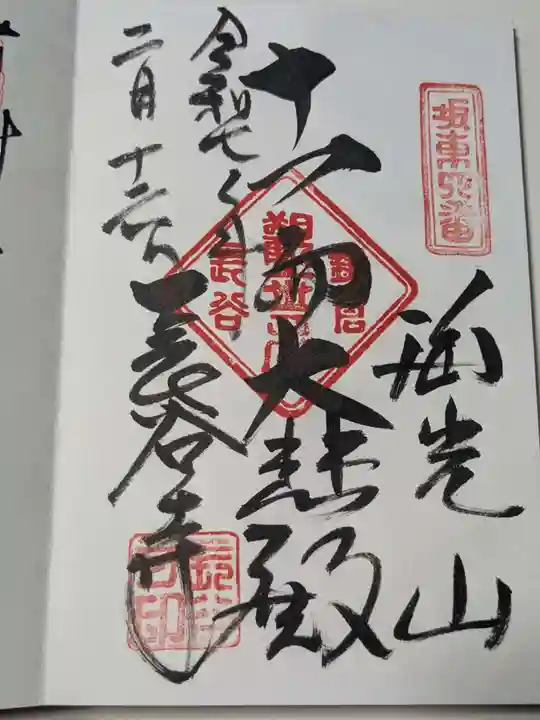 坂東四番
海光山
十一面大悲殿
鎌倉
観世音
長谷
令和七年
二月十六日
長谷寺